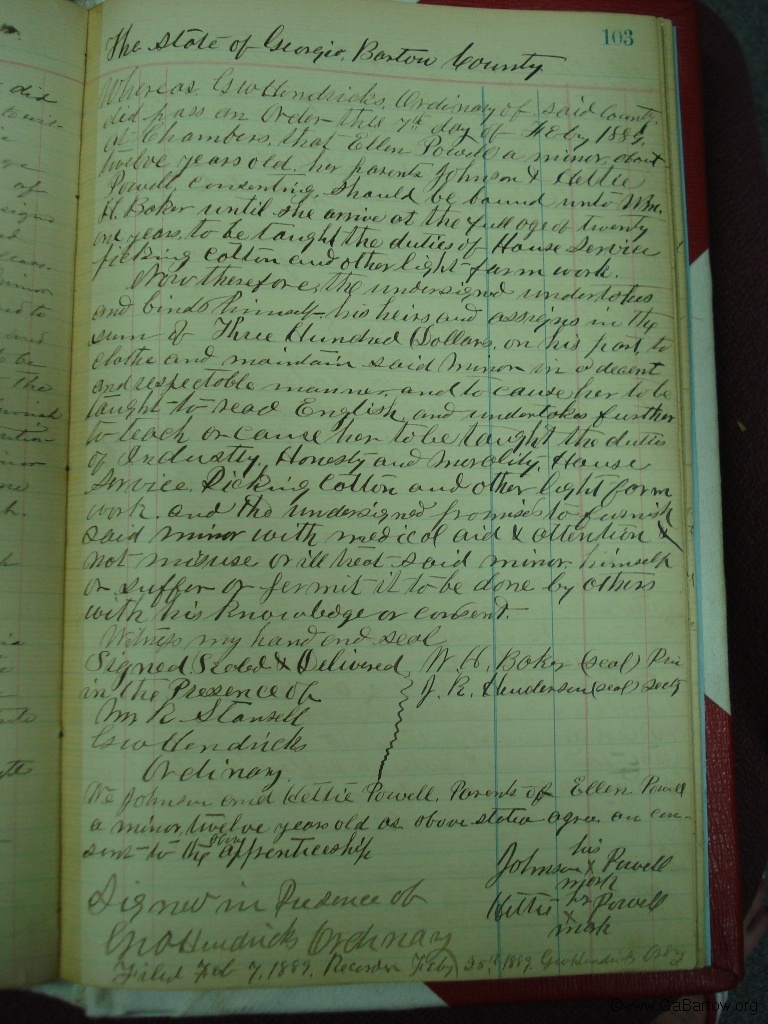 103
The State of Georgia, Bartow County
Whereas, Geo Hendricks, Ordinary of said County
did pass an Order this 7th day of Feby 1889,
at Chambers, that Ellen Powell a minor, about
twelve years old, her parents Johnson & Hettie
Powell, consenting, should be bound unto Wm.
H. Baker until she arrive at the full age of twenty
one years, to be taught the duties of House Service
picking Cotton and other light farm work.
Now therefore, the undersigned undertakes
and binds himself his heirs and assigns in the
sum of Three Hundred Dollars, on his part, to
clothe and maintain said minor in a decent
and respectable manner, and to cause her to be
taught to read English, and undertakes further
to teach or cause her to be taught the duties
of Industry, Honesty and Morality, House
Service, Picking Cotton and other light farm
work. And the undersigned promises to furnish
said minor with medical aid & attention &
not misuse or ill treat said minor himself
or suffer or permit it to be done by others
with his Knowledge or consent.
Witness my hand and seal
Signed Sealed & Delivered W. H. Baker (seal) Prin
in the Presence of J. R. Henderson (seal) Secty
M R Stansell
Geo Hendricks
Ordinary
We Johnson and Hettie Powell, Parents of Ellen Powell
a minor, twelve years old as above stated agree an con-
sent to the above apprenticeship
his
Johnson X Powell
mark
Signed in Presence of Hettie her Powell
X
mark
Geo Hendricks Ordinary
Filed Feb 7, 1889, Recorded Feby 1889 Geo Hendricks Ordy
www.GaBartow.org
did
of
and
to
and
to be
the